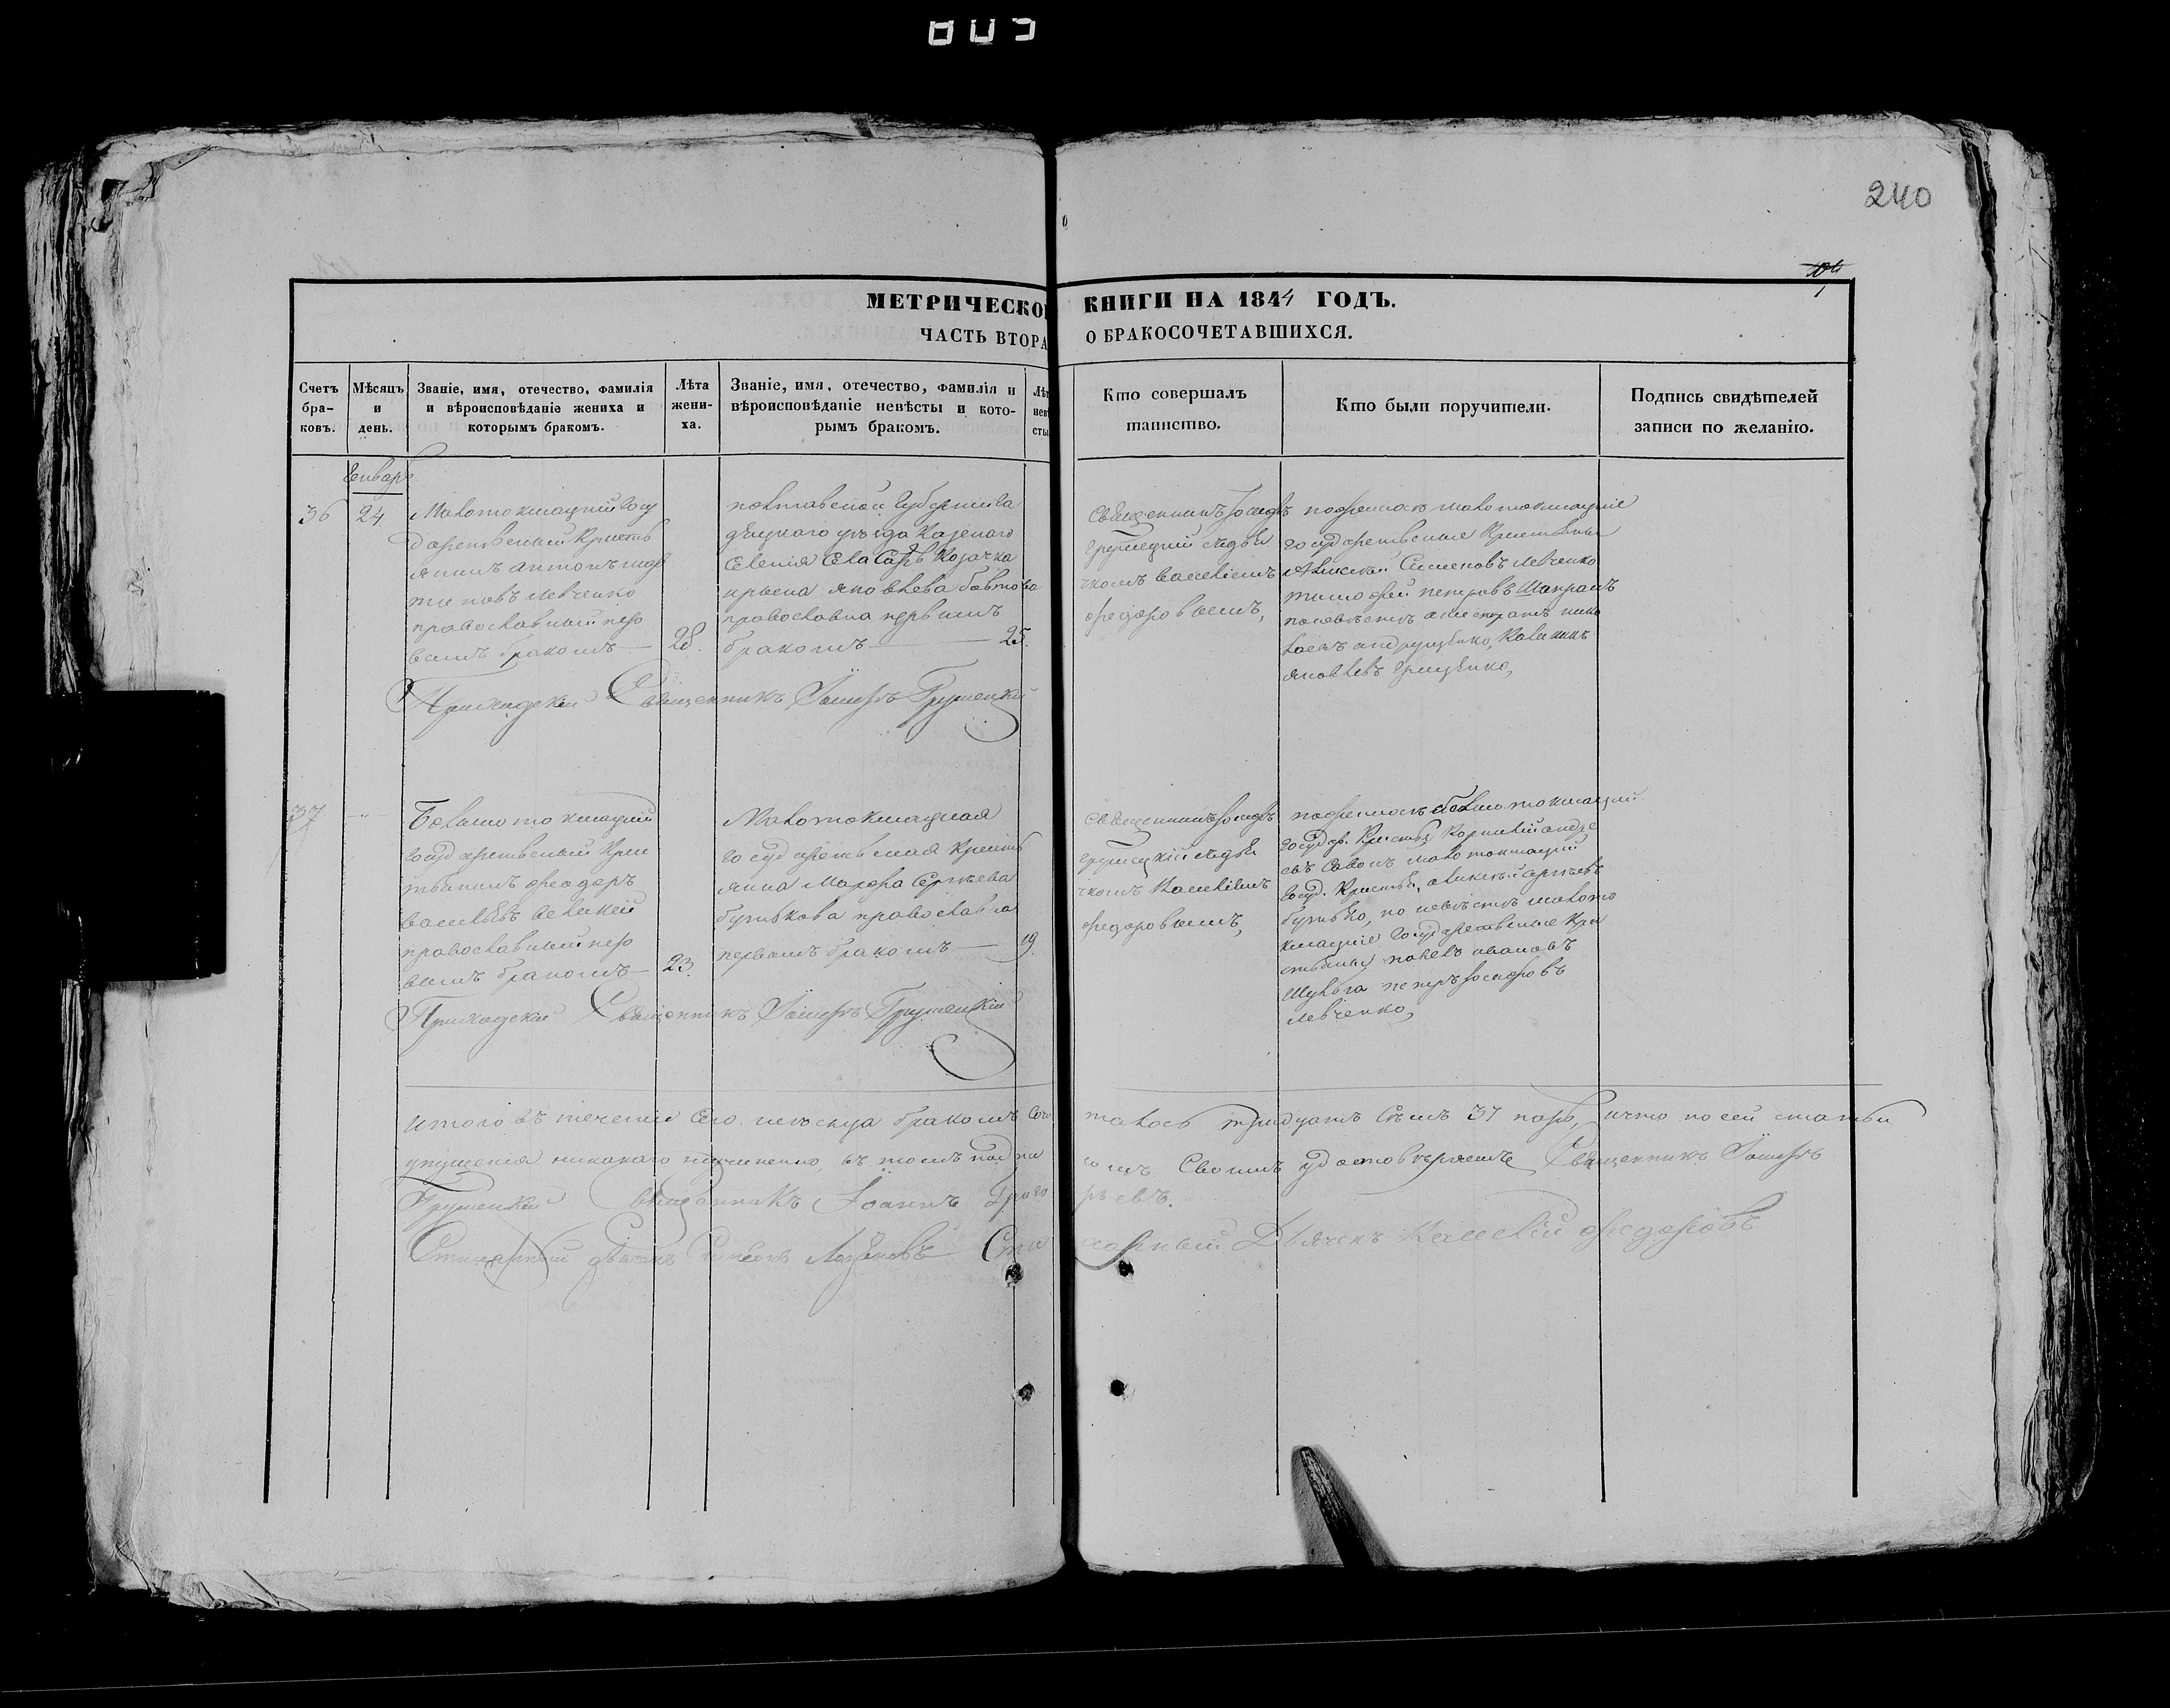 803
240
МЕТРИЧЕСКО КНИГИ НА 1844 ГОДЪ.
ЧАСТЬ ВТОРА О БРАКОСОЧЕТАВШИХСЯ.
Счетъ бра-ковъ.
Мѣсяцъ и день.
Званіе, имя, отечество, фамилія
и вѣроисповѣданіе жениха и
которымъ бракомъ.
Лѣта
жени-
ха.
Званіе, имя, отечество, фамилія и
вѣроисповѣданіе невѣсты и кото-
рымъ бракомъ.
Лѣт
невѣ
сты
Кто совершалъ
таинство.
Кто были поручители.
Подпись свидѣтелей
записи по желанію.
Генварь
36
24
Малотокмацкий Госу
дарственный Крестъ
янинъ антонъ мар
тиновъ левченко
православный пер
вымъ бракомъ — 28.
полтавской Губернии Га
дяцкого уезда Казеного
Села Сарѣ Козачка
ирина яковлева
православна первымъ
бракомъ — 25.
Священникъ иосифъ
Грушецкий сѣдья
чкомъ василіемъ
федоровымъ,
поженихѣ малотокмацкие
государственные Крестьяне
Алексѣй Симеоновъ левченко
тимофей петровъ
поневѣстѣ нико
лаевъ андрущенко, Калиникъ
яковлевъ грищенко,
Приходскій Священникъ Іосифъ Грушецкій
37
„
Большотокмацкий
государственый Крес
тьянинъ феодоръ
васильевъ великий
православный пер
вымъ бракомъ — 23.
Малотокмацкая
государственная Кресть
янка Марфа Сергѣева
бутькова православна
первымъ бракомъ — 19.
Священникъ иосифъ
Грушецкій сѣдья
чкомъ Василіемъ
федоровымъ,
поженихѣ большотокмацкий
госуд. Крестьян Корнилий андре
евъ малотокмацкий
Госуд. Крестья, алексѣй сергѣевъ
бутько, по невѣстѣ малото
кмацкіе Государственные Кре
стьяны павелъ ивановъ
Шульга петръ иосифовъ
левченко,
Приходскій Священникъ Іосифъ Грушецкій
итого въ течении Сего месяца бракомъ Соче талось тридцать Съмъ 37 паръ, ичто посей статьи
упущения никакого неучинено, въ томъ подпи омъ Своимъ удостовѣряемъ Священникъ Іосифъ
Грушецкій Священникъ Іоаннъ Григо рьевъ.
Стихарный дьячекъ Сти харный Дьячекъ Василій федоровъ